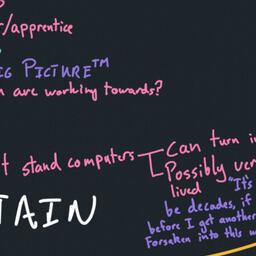 r/apprentice
IG PICTURE™
are working towards?
t stand computers
Can turn in
Possibly ver
lived
"It's
be decades, if
before I get another
Forsaken into this w
TAIN